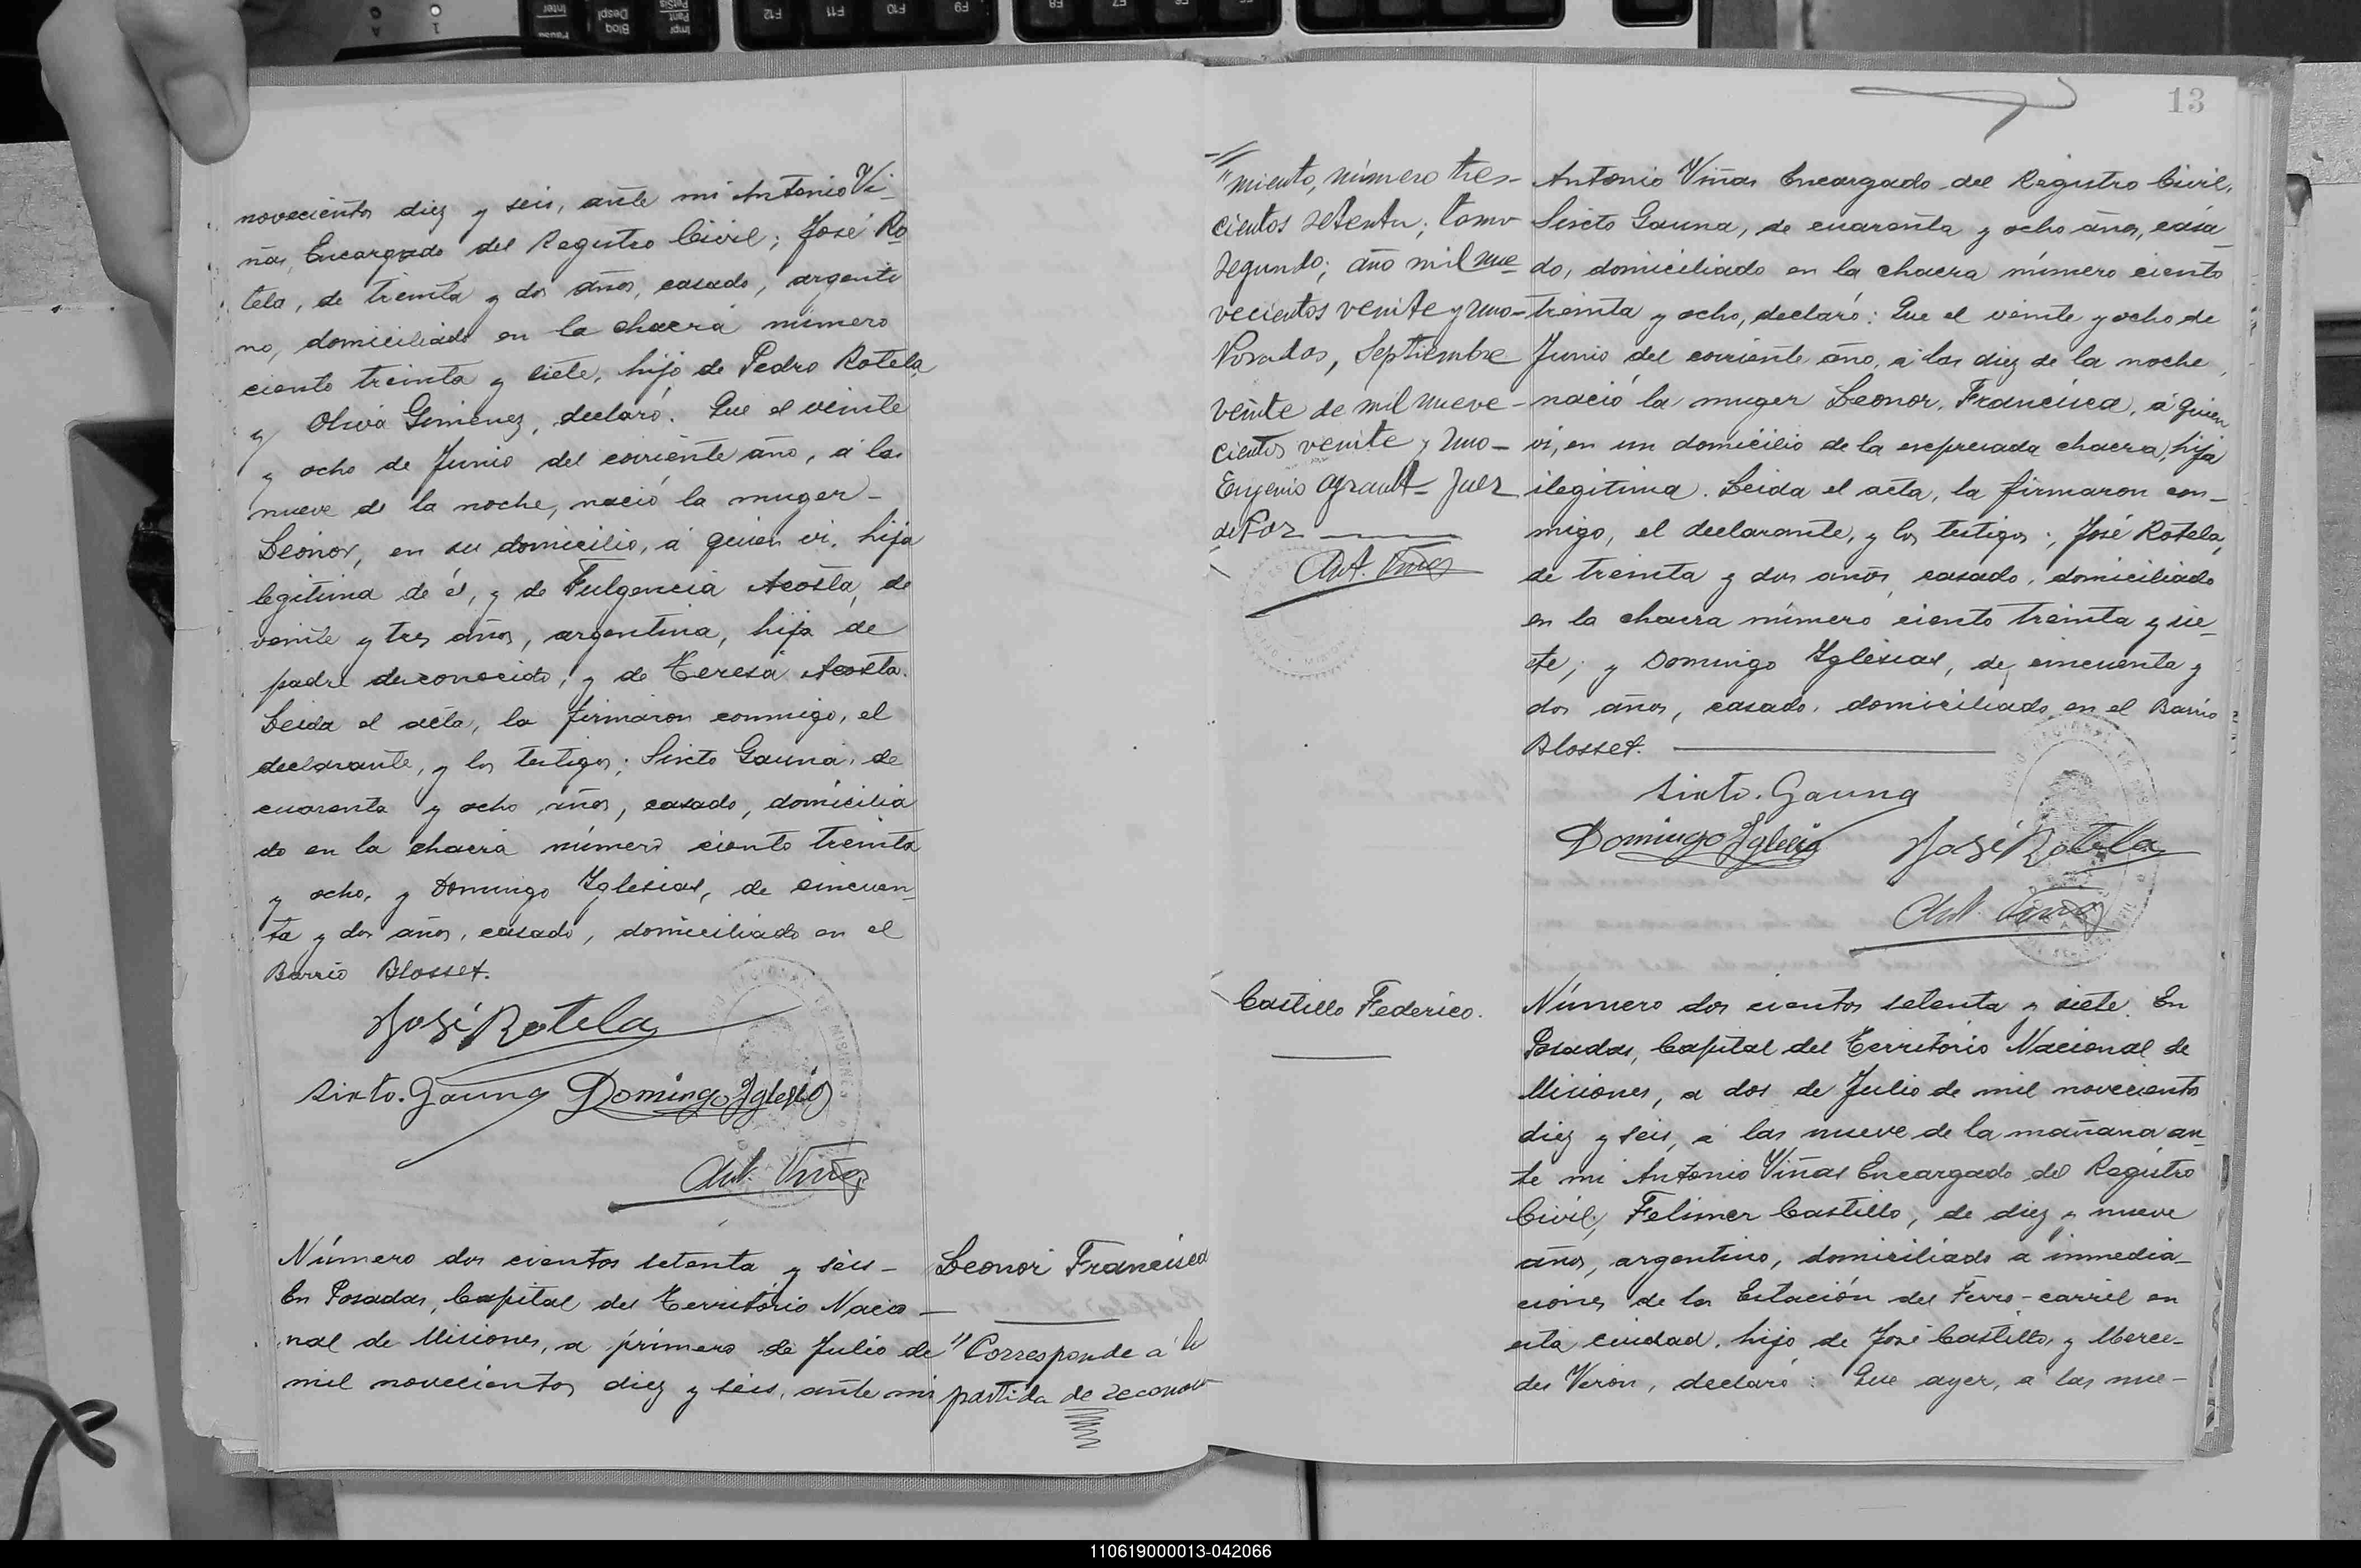 novecientos diez y seis, ante mi Antonio Vi-
ñas, Encargado del Registro Civil; José Ro
tela, de treinta y dos años, casado, argenti
no, domiciliado en la chacra número
ciento treinta y siete, hijo de Pedro Rotela
y Oliva Gimenez, declaró: Que el veinte
y ocho de Junio del corriente año, á las
nueve de la noche, nació la muger-
Leonor, en su domicilio, á quien vi, hija
legitima de él, y de Fulgencia Acosta, de
veinte y tres años, argentina, hija de
padre desconocido, y de Teresa Acosta.
Leida el acta, la firmaron conmigo, el
declarante, y los testigos; Sixto Gauna, de
cuarenta y ocho años, casado, domicilia
do en la chacra número ciento treinta
y ocho, y Domingo Yglesias, de cincuen-
ta y dos años, casado, domiciliado en el
Barrio Blosset.
José Rotela
Sixto. Gauna Domingo Yglesias
Ant. Viñas
Número dos cientos setenta y seis-
En Posadas, Capital del Territorio Nacio-
nal de Misiones, a primero de Julio de
mil novecientos diez y seis, ante mi
Leonor Francisca
"Corresponde á la
partida de reconoci
13
"miento, número tres-
cientos setenta; tomo
segundo; año mil nue
vecientos veinte y uno-
Posadas, Septiembre
veinte de mil nueve-
cientos veinte y uno-
Eugenio Juez
de Paz
Ant. Viñas
Antonio Viñas Encargado del Registro Civil,
Sixto Gauna, de cuarenta y ocho años, casa-
do, domiciliado en la chacra número ciento
treinta y ocho, declaró: Que el veinte y ocho de
Junio del corriente año, á las diez de la noche,
nació la muger Leonor, Francisca, á quien
vi, en un domicilio de la expresada chacra, hija
ilegitima. Leida el acta, la firmaron con-
migo, el declarante, y los testigos; José Rotela,
de treinta y dos años, casado, domiciliado
en la chacra número ciento treinta y sie-
te; y Domingo Yglesias, de cincuenta y
dos años, casado, domiciliado en el Barrio
Blosset.
Sixto. Gauna
Domingo Yglesias José Rotela
Ant. Viñas
Castillo Federico.
Número dos cientos setenta y siete. En
Posadas, Capital del Territorio Nacional de
Misiones, a dos de Julio de mil novecientos
diez y seis, á las nueve de la mañana an
te mi Antonio Viñas Encargado del Registro
Civil; Felimer Castillo, de diez y nueve
años, argentino, domiciliado a inmedia-
ciones de la Estación del Ferro-carril en
esta ciudad, hijo de José Castillo, y Merce-
des Veron, declaró: Que ayer, á las nue-
110619000013-042066